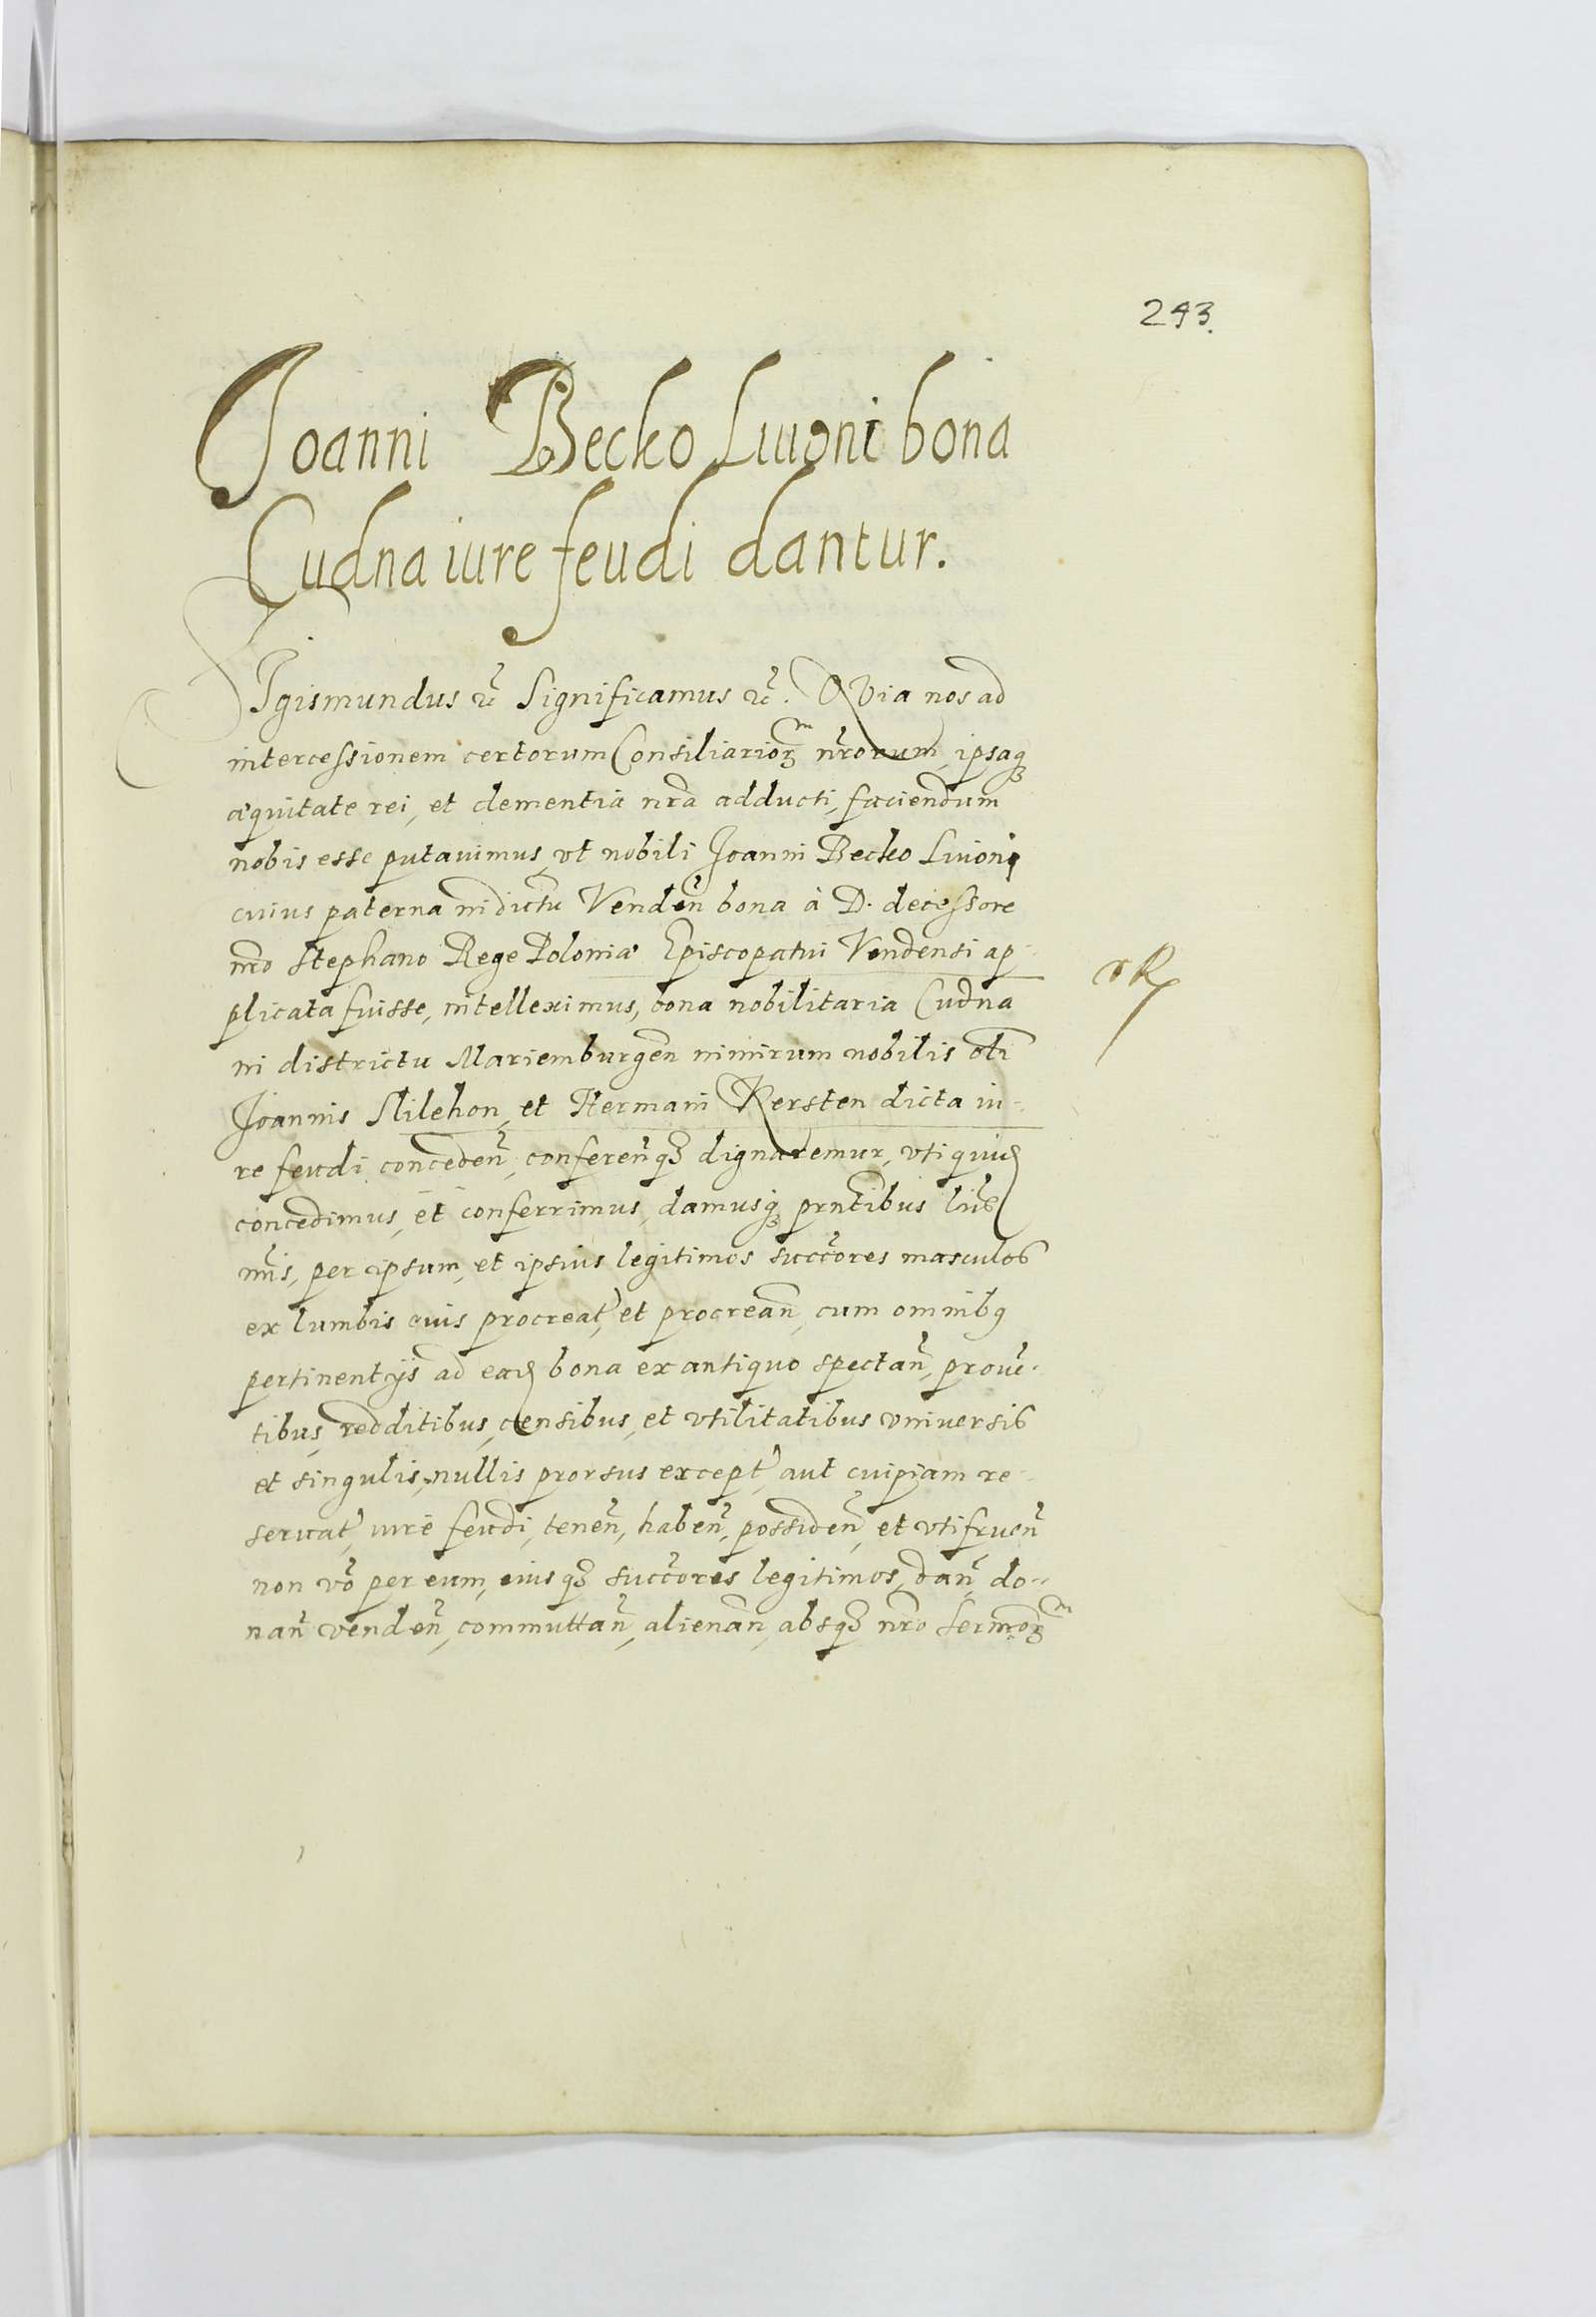 243.
Joanni Becko Liuoni bona
Cudna iure feudi dantur.
SIgismundus etc̃ Significamus etc̃. QVia nos ad
intercessionem certorum Consiliarioꝝ nr̃orum, ipsaqꝫ
æquitate rei, et clementia nr̃a adducti, faciendum
nobis esse putauimus, vt nobili Joanni Becko Liuoni
cuius paterna in dictu Venden̄ bona à D. decessore
nr̃o Stephano Rege Poloniæ Episcopatui Vendensi ap-
plicata fuisse, intelleximus, bona nobilitaria Cudna
in districtu Mariemburgen̄ nimirum nobilis oli͞
Joannis Nilehon, et Hermani Kersten dicta iu-
re feudi conceden̄, conferen̄qꝫ dignaremur, vti quidem
concedimus, et conferrimus, damusqꝫ prn̄tibus lir̃is
nr̃is, per ipsum, et ipsius legitimos succ̃ores masculos
ex lumbis euis procreat̃, et procrean̄, cum omnibꝰ
pertinentijs ad ead bona ex antiquo spectan̄, prouē-
tibus, redditibus, censibus, et vtilitatibus vniuersis
et singulis, nullis prorsus except̃, aut cuipiam re-
seruat̃, iure feudi, tenen̄, haben̄, possiden̄, et vtifruen̄
non vo̊ per eum, eiusqꝫ succ̃ores legitimos, dan̄, do-
nan̄ venden̄, commuttan̄, alienan̄, absqꝫ nr̃o Serm̃oꝝ